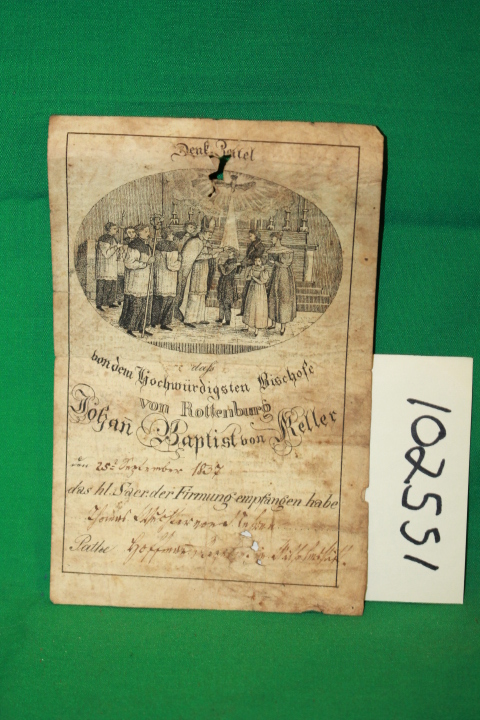 Denk-Zettel
daß
von dem Hochwürdigsten Bischofe
von Rottenburg
Johan Baptist von Keller
den 25t September 1837
das hl. Sacr. der Firmung empfangen habe
Pathe
102551